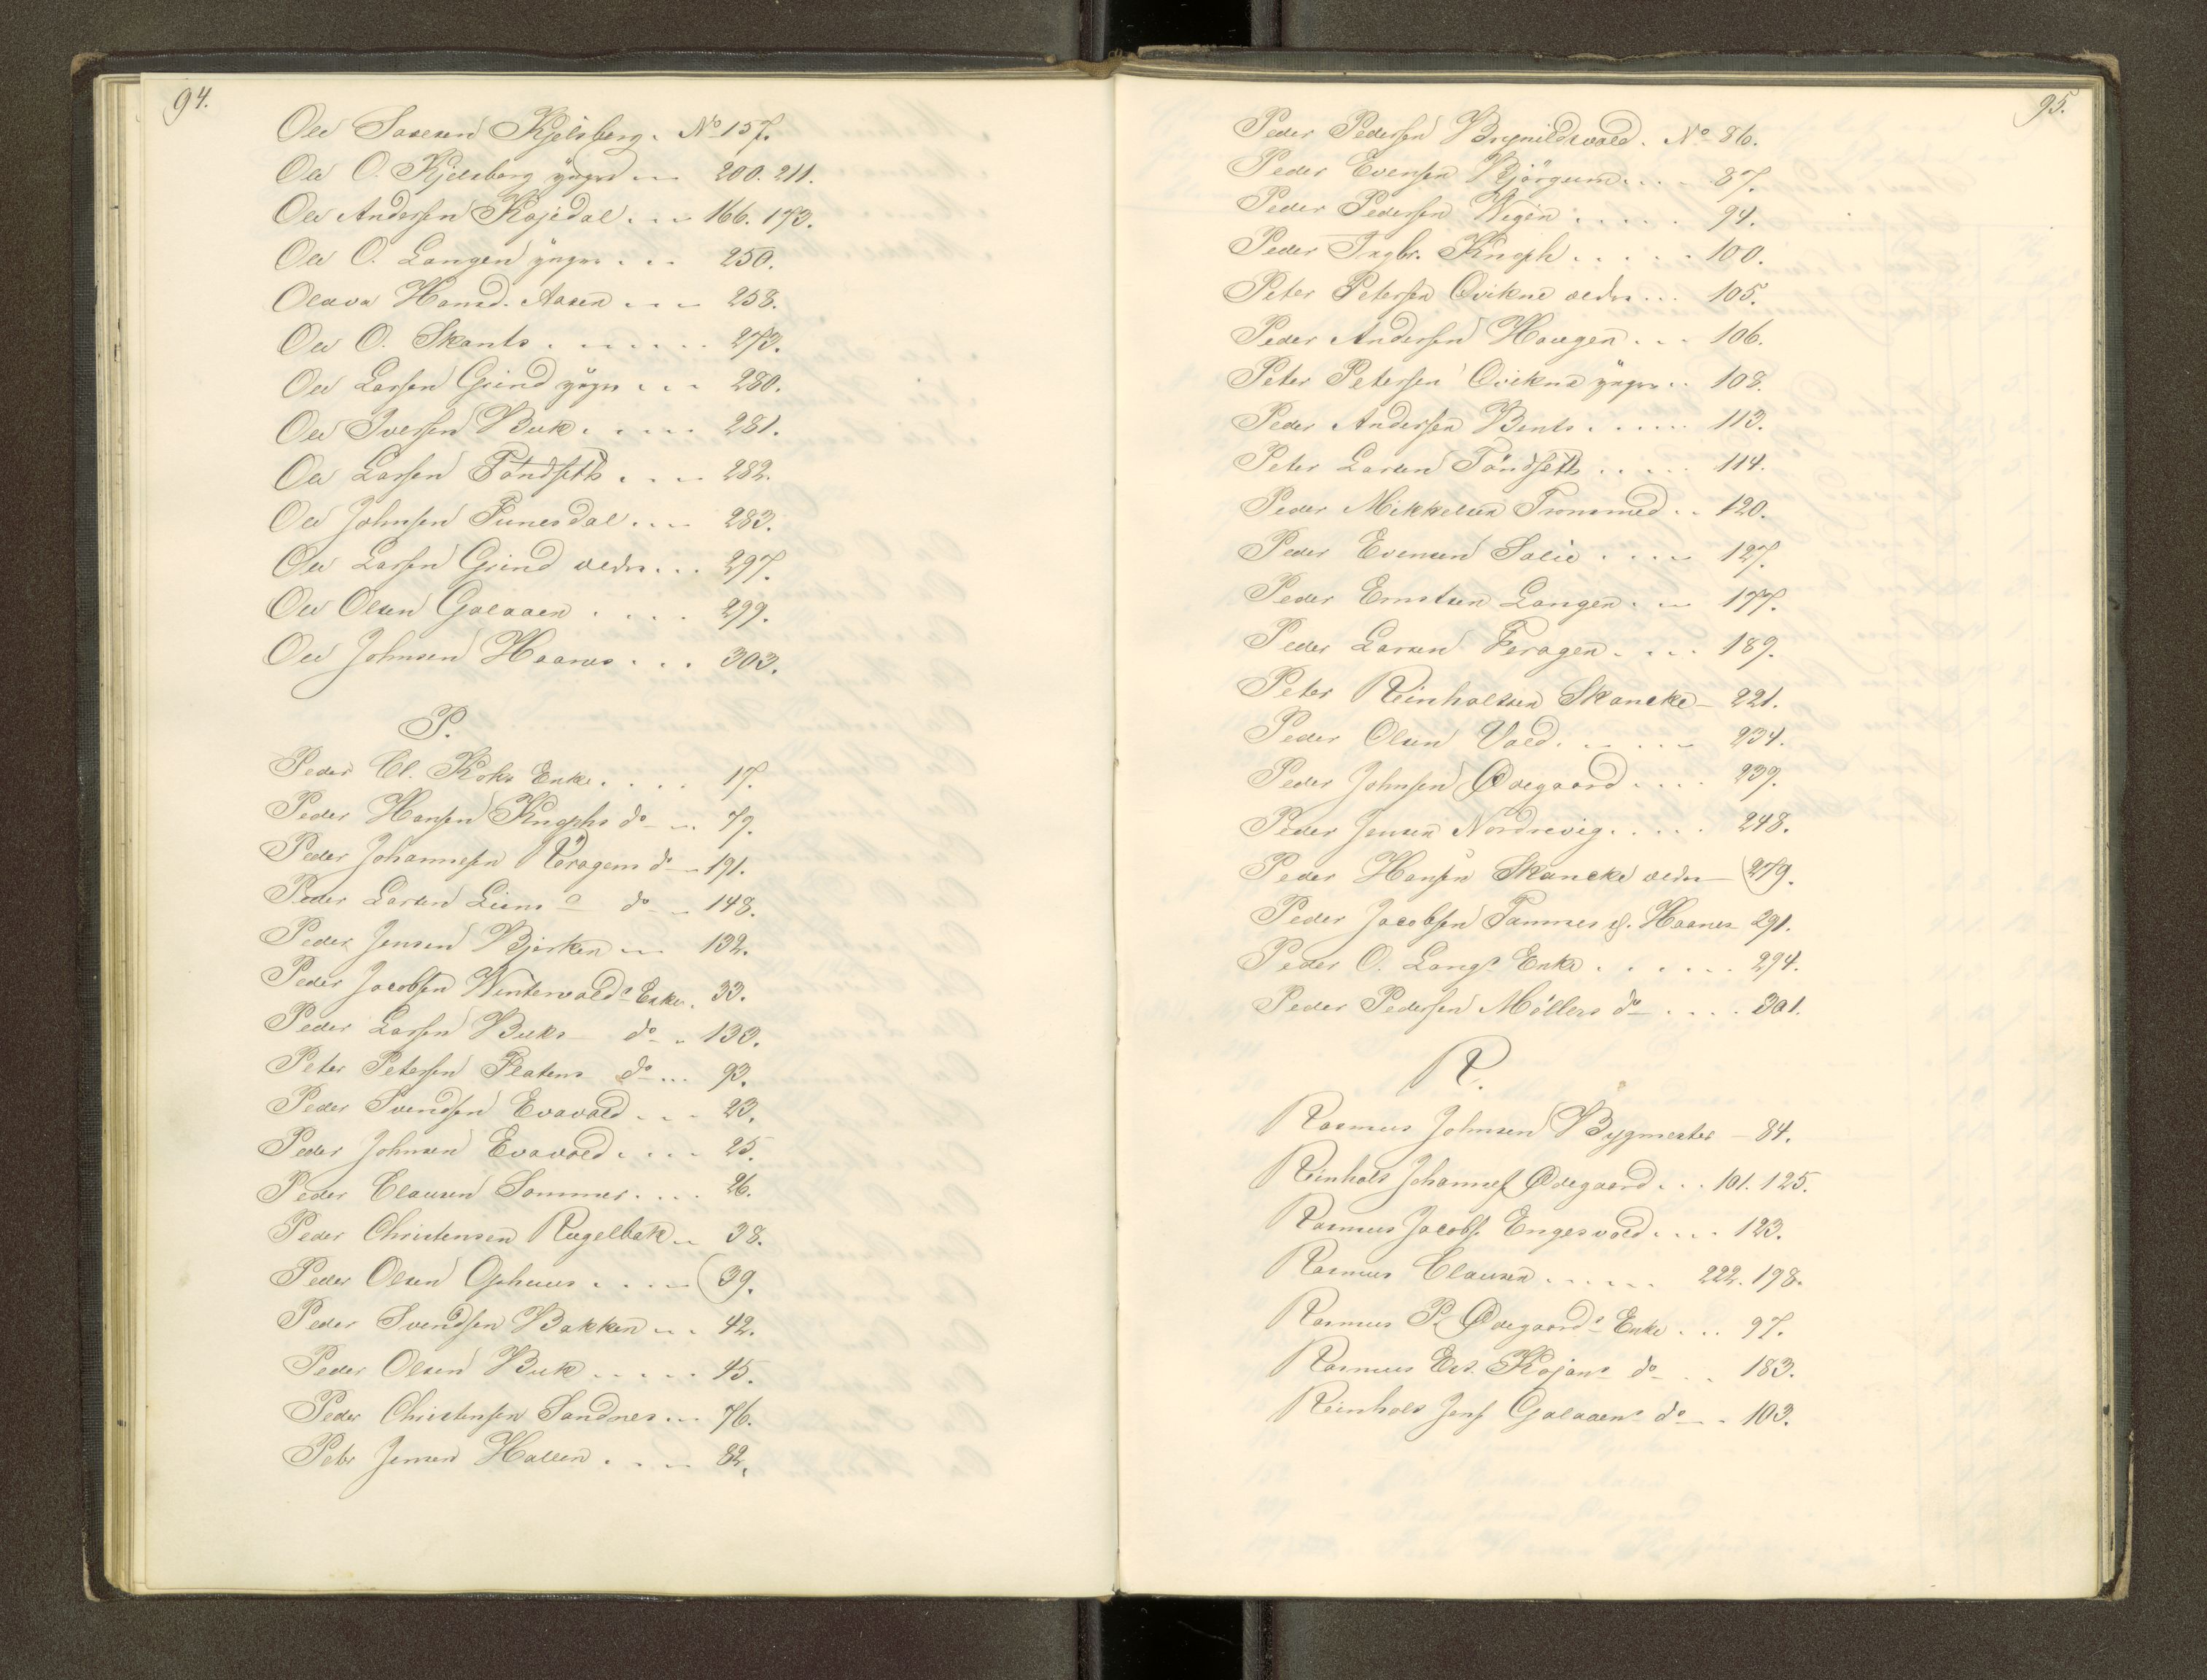 94.
Ole Larsen Kjelsberg. No 157.
Ole O. Kjelsberg yngre ... 200. 211.
Ole Andersen Kojedal ... 166. 173.
Ole O. Langen yngre ... 250.
Olava Hansd. Aasen ... 258.
Ole O. Skants ...... 273.
Ole Larsen Grind yngre ... 280.
Ole Iversen Buk ..... 281.
Ole Larsen Tøndseth ... 282.
Ole Johnsen Funesdal .... 283.
Ole Larsen Grind ældre ... 297.
Ole Olsen Galaaen .... 299.
Ole Johnsen Haanes ... 303.
P.
Peder Cl. Koks Enke .... 17.
Peder Hansen Knophs do ... 79.
Peder Johannesen Feragens do .. 191.
Peder Larsen Liens do .. 148.
Peder Jensen Bjerken ... 132.
Peder Jacobsen Wintervolds Enke. 33.
Peder Larsen Buks do .. 130.
Peter Petersen Platens do ... 93.
Peder Svendsen Evavold ... 23.
Peder Johnsen Evavold .... 25.
Peder Clausen Sommer .... 26.
Peder Christensen Kugelbak .. 38.
Peder Olsen Ophuus .... (39.
Peder Svendsen Bakken ... 42.
Peder Olsen Buk ..... 45.
Peder Christensen Sandnes ... 76.
Peter Jensen Hallen .... 82.
95.
Peder Pedersen Brynildsvold. No 86.
Peder Evensen Bjørgum .... 87.
Peder Pedersen Wegen ..... 94.
Peder Ingbr. Knoph ..... 100.
Peter Petersen Qvikne ældre ... 105.
Peder Andersen Haugen ... 106.
Peter Petersen Qvikne yngre .. 108.
Peder Andersen Bents ..... 113.
Peter Larsen Tøndseth ..... 114.
Peder Mikkelsen Tronsmed .. 120.
Peder Evensen Solie .... 127.
Peder Erntsen Langen ... 177.
Peder Larsen Feragen .... 189.
Peter Reinholtsen Skancke - 221.
Peder Olsen Vold ..... 234.
Peder Johnsen Ødegaard .... 239.
Peder Jensen Nordrevig ..... 248.
Peder Hansen Skancke ældre (279.
Peder Jacobsen Tamnes el. Haanes 291.
Peder O. Langs Enke ...... 294.
Peder Pedersen Möllers do .... 301.
R.
Rasmus Johnsen Bygmester - 84.
Reinholt Johannes Ødegaard ... 101. 125.
Rasmus Jacobs. Engesvold .... 123.
Rasmus Clausen ...... 222. 198.
Rasmus P. Ødegaards Enke ... 97.
Rasmus Est. Kojans do .. 183.
Reinholt Jens Galaaens do .. 103.